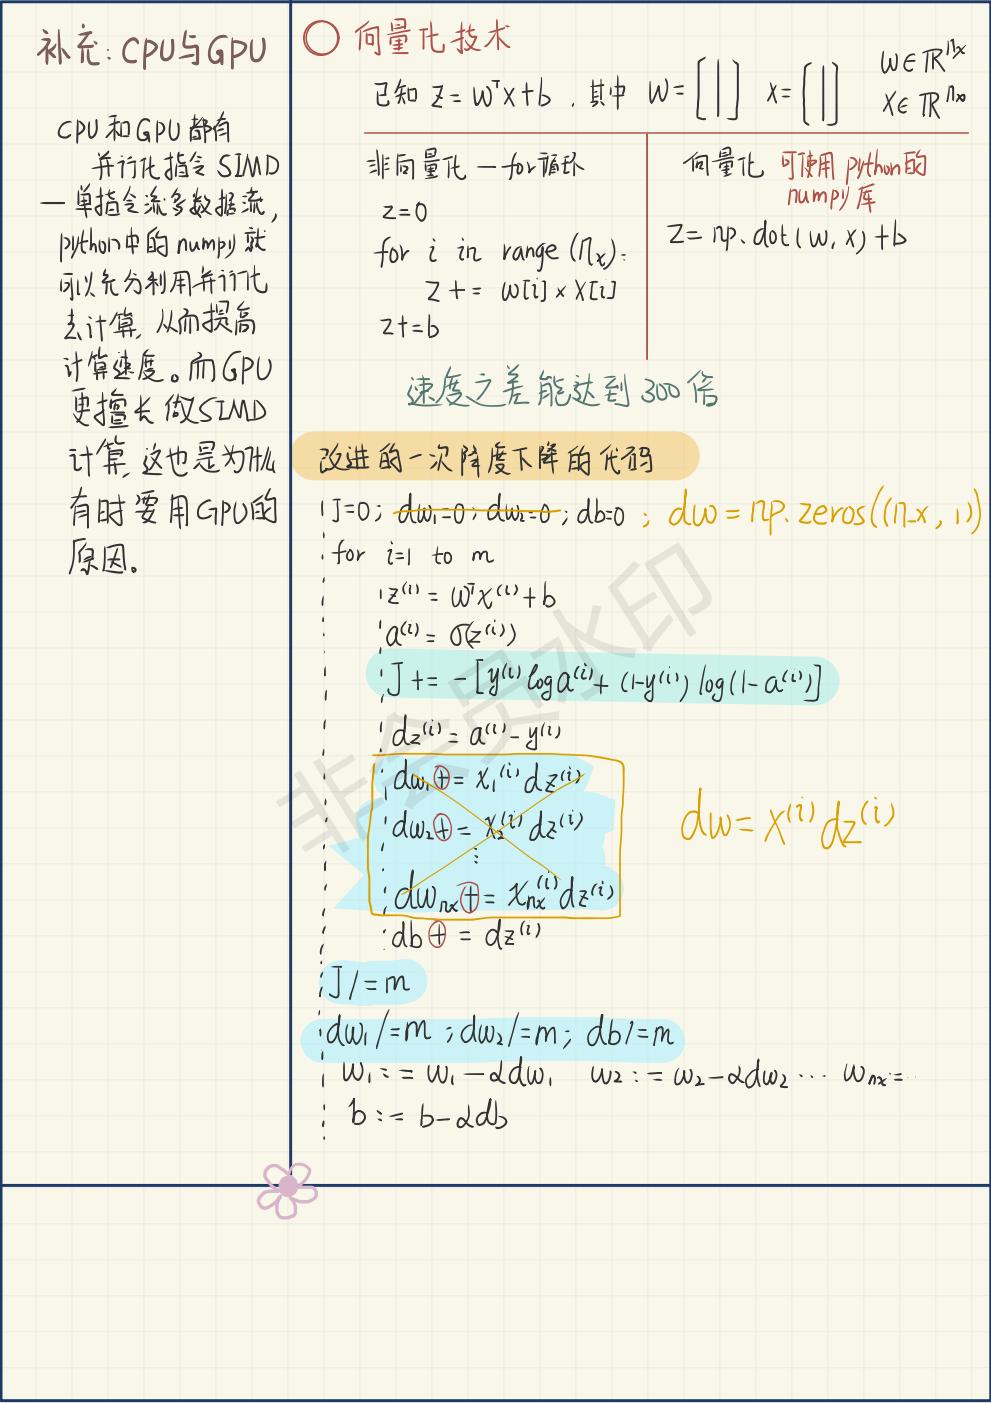 补充：CPU与GPU
CPU和GPU都有
并行化指令SIMD
—单指令流多数据流，
python中的numpy就
可以充分利用并行化
去计算，从而提高
计算速度。而GPU
更擅长做SIMD
计算，这也是为什么
有时要用GPU的
原因。
○ 向量化技术
已知 z=wᵀx+b ，其中 w=[|] x=[|] w∈ℝⁿˣ
x∈ℝⁿˣ
非向量化 — for循环
z=0
for i in range(nₓ):
z += w[i]×x[i]
z+=b
向量化 可使用python的
numpy库
z=np.dot(w,x)+b
速度之差能达到300倍
改进的一次降度下降的代码
J=0; dw₁=0; dw₂=0; db=0 ; dw=np.zeros((n_x,1))
for i=1 to m
z⁽ⁱ⁾=wᵀx⁽ⁱ⁾+b
a⁽ⁱ⁾=σ(z⁽ⁱ⁾)
J+=-[y⁽ⁱ⁾loga⁽ⁱ⁾+(1-y⁽ⁱ⁾)log(1-a⁽ⁱ⁾)]
dz⁽ⁱ⁾=a⁽ⁱ⁾-y⁽ⁱ⁾
dw₁+=x₁⁽ⁱ⁾dz⁽ⁱ⁾
dw₂+=x₂⁽ⁱ⁾dz⁽ⁱ⁾
⋮
dwₙₓ+=xₙₓ⁽ⁱ⁾dz⁽ⁱ⁾
dw=x⁽ⁱ⁾dz⁽ⁱ⁾
db+=dz⁽ⁱ⁾
J/=m
dw₁/=m ;dw₂/=m; db/=m
w₁:=w₁-αdw₁ w₂:=w₂-αdw₂ ⋯ wₙₓ=⋯
b:=b-αdb
非会员水印